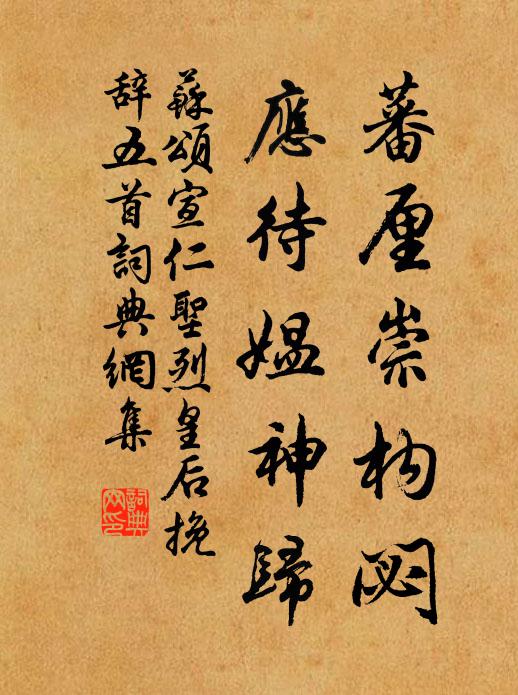 蕃厘崇构閟
應待媼神歸
蘇頌宣仁聖烈皇后挽
辞五首詞典網集
詞典
网印